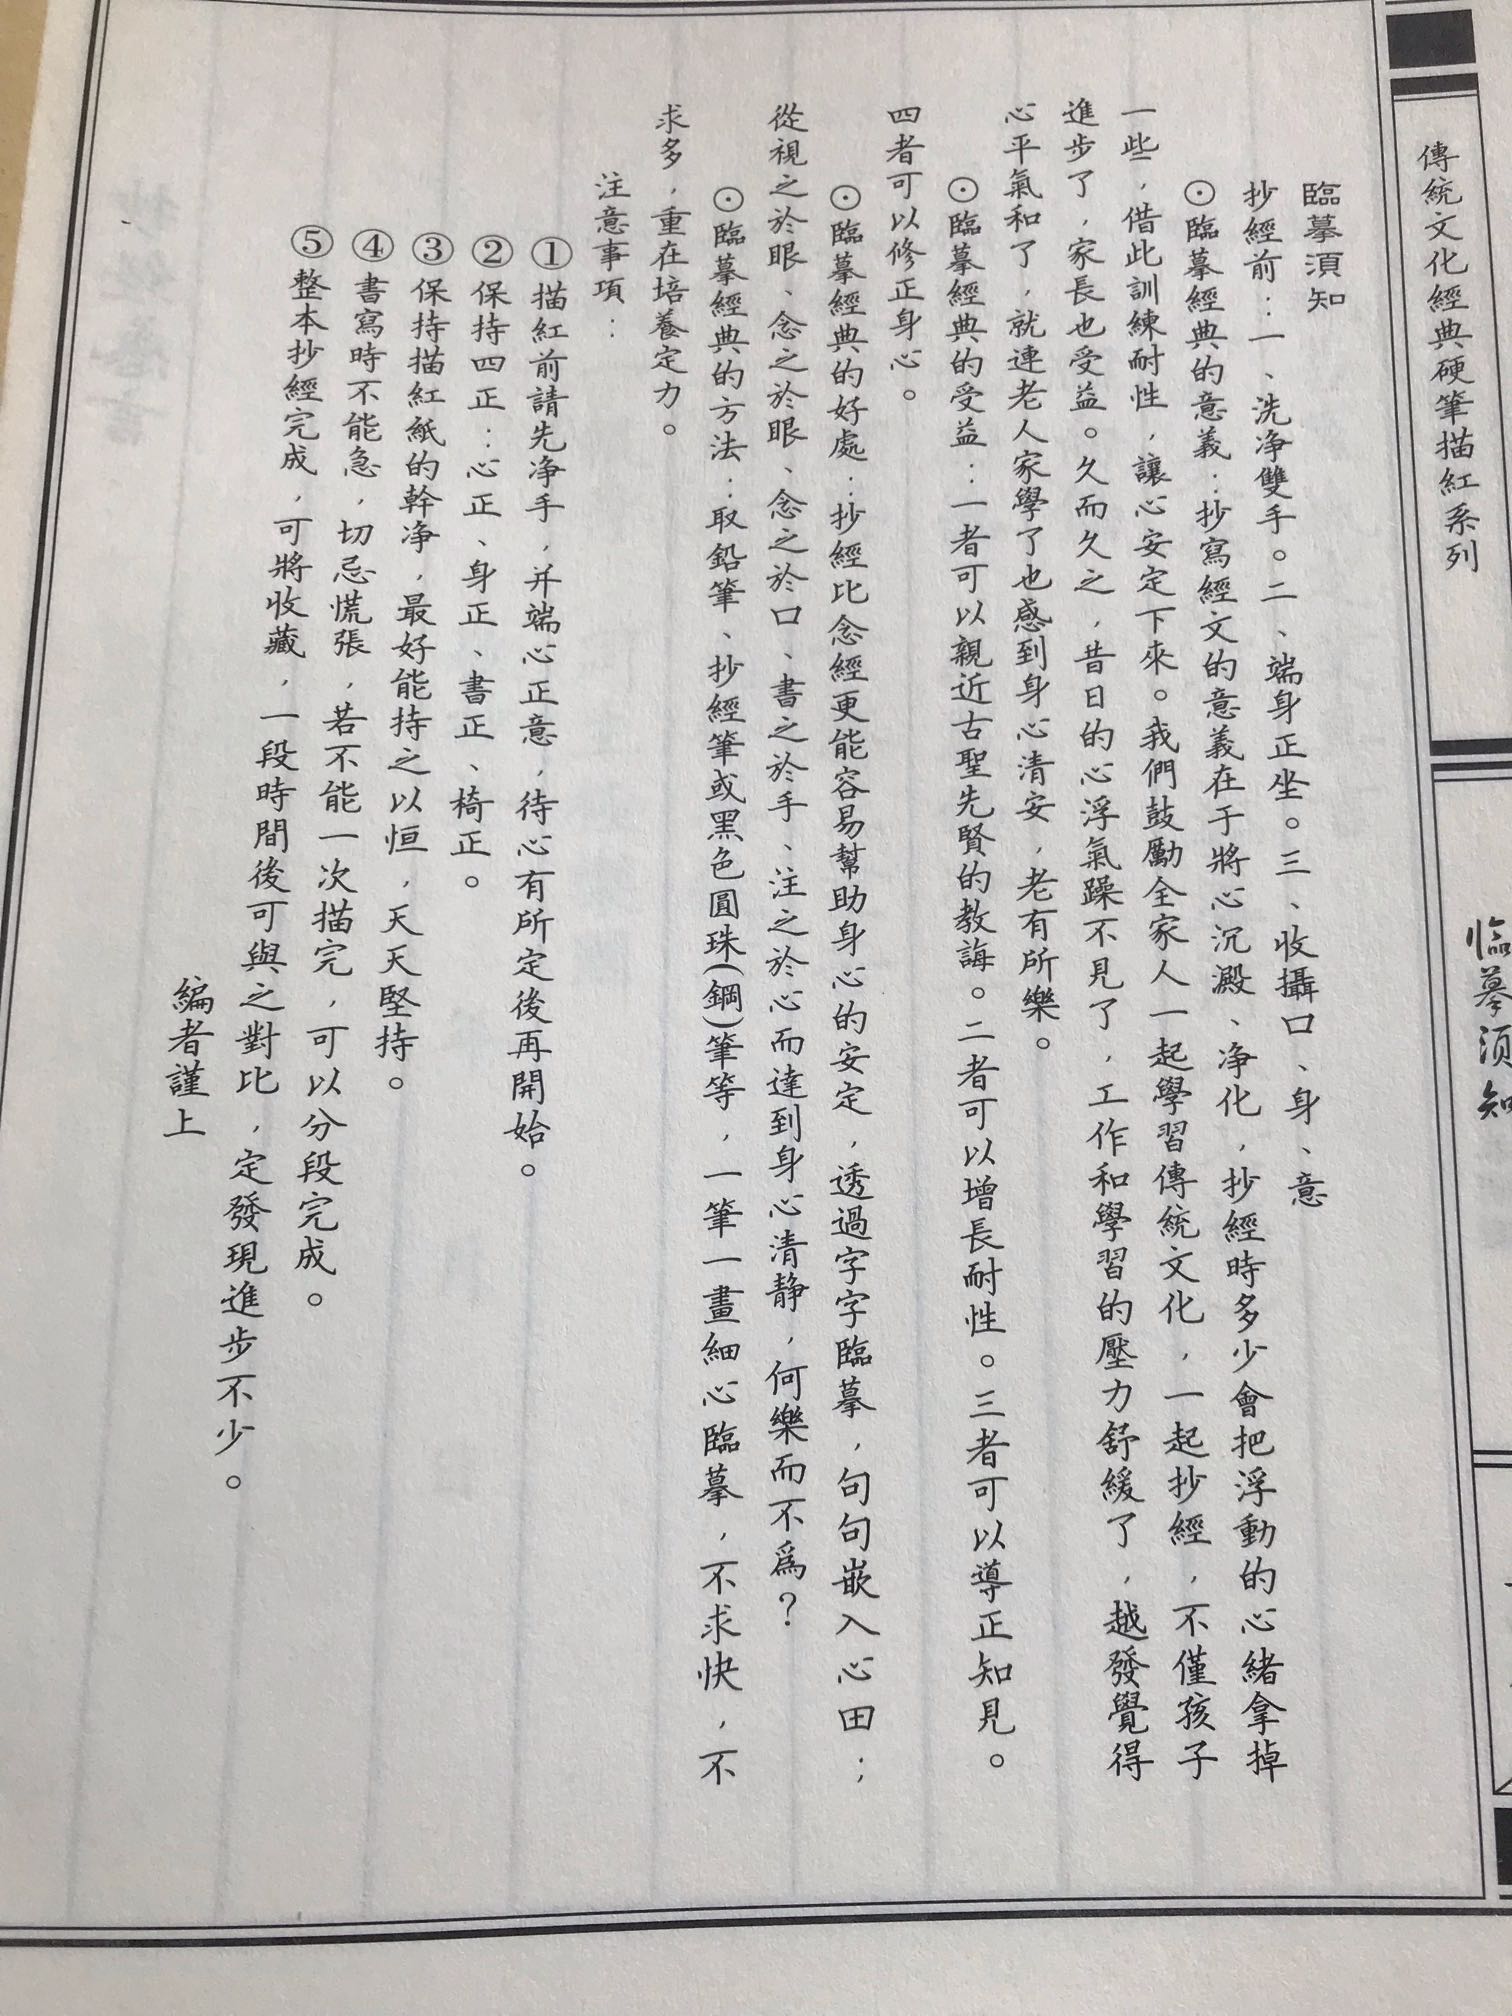 傳統文化經典硬筆描紅系列
臨摹須知
臨摹須知
抄經前：一、洗净雙手。二、端身正坐。三、收攝口、身、意
⊙臨摹經典的意義：抄寫經文的意義在于將心沉澱、净化，抄經時多少會把浮動的心緒拿掉
一些，借此訓練耐性，讓心安定下來。我們鼓勵全家人一起學習傳統文化，一起抄經，不僅孩子
進步了，家長也受益。久而久之，昔日的心浮氣躁不見了，工作和學習的壓力舒緩了，越發覺得
心平氣和了，就連老人家學了也感到身心清安，老有所樂。
⊙臨摹經典的受益：一者可以親近古聖先賢的教誨。二者可以增長耐性。三者可以導正知見。
四者可以修正身心。
⊙臨摹經典的好處：抄經比念經更能容易幫助身心的安定，透過字字臨摹，句句嵌入心田；
從視之於眼、念之於眼、念之於口、書之於手、注之於心而達到身心清静，何樂而不爲？
⊙臨摹經典的方法：取鉛筆、抄經筆或黑色圓珠(鋼)筆等，一筆一畫細心臨摹，不求快，不
求多，重在培養定力。
注意事項：
①描紅前請先净手，并端心正意，待心有所定後再開始。
②保持四正：心正、身正、書正、椅正。
③保持描紅紙的幹净，最好能持之以恒，天天堅持。
④書寫時不能急，切忌慌張，若不能一次描完，可以分段完成。
⑤整本抄經完成，可將收藏，一段時間後可與之對比，定發現進步不少。
編者謹上